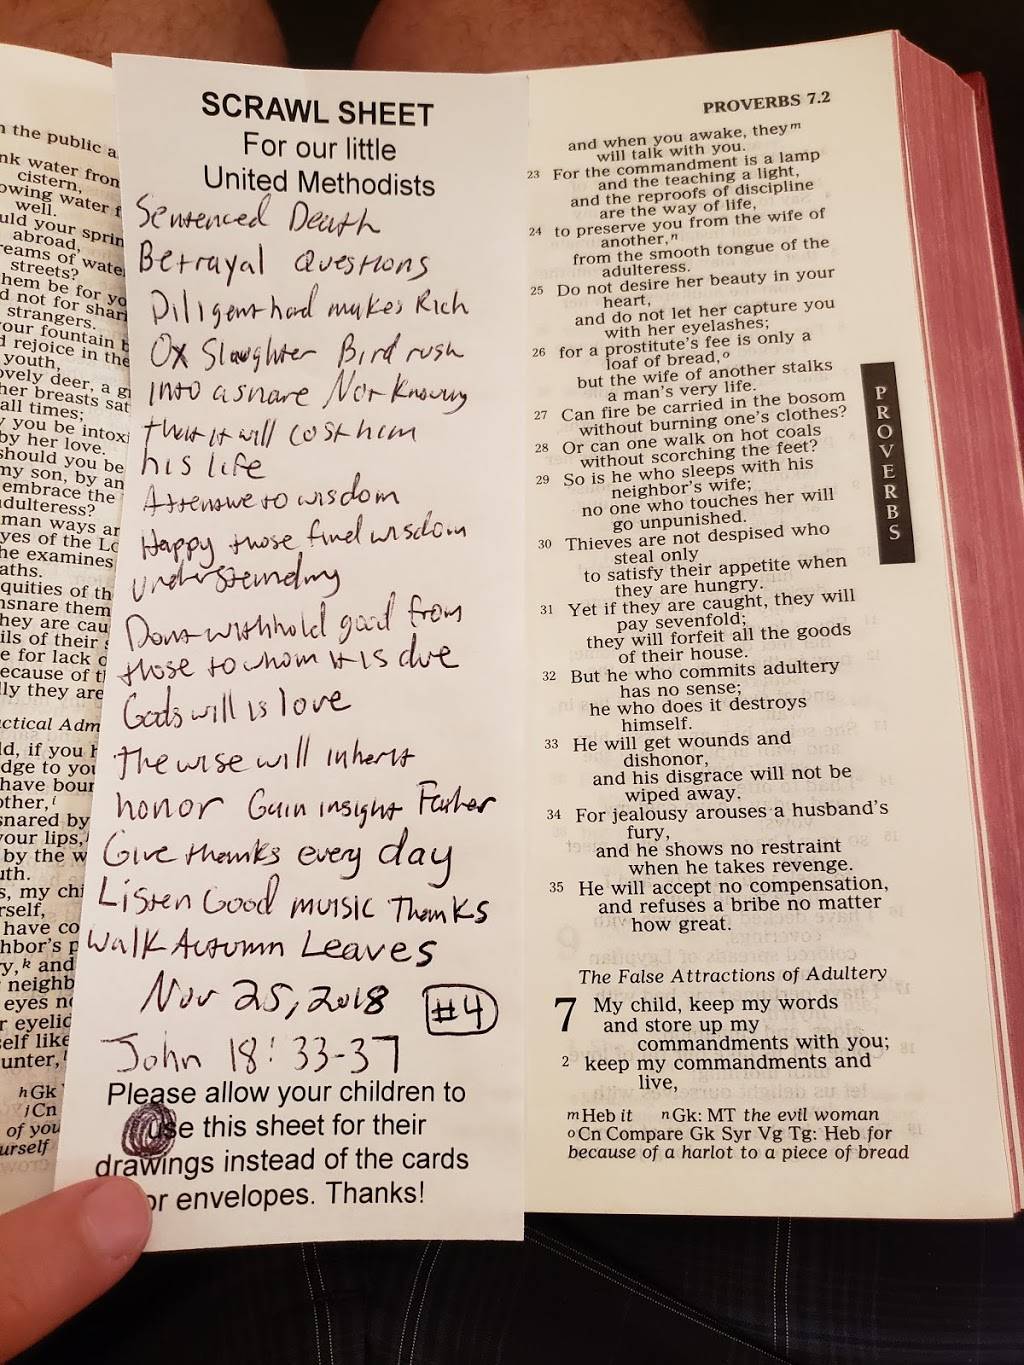 n the public a
nk water from
cistern,
owing water f
well.
uld your sprin
abroad,
reams of water
streets?
hem be for yo
d not for shar
strangers.
our fountain b
d rejoice in the
youth,
ovely deer, a g
her breasts sat
all times;
y you be intoxi
by her love.
should you be
my son, by an
embrace the
adulteress?
man ways ar
yes of the Lo
he examines
paths.
quities of th
nsnare them
hey are cau
ils of their s
e for lack o
ecause of t
lly they are
actical Adm
ld, if you h
dge to you
have boun
other,i
snared by
your lips,
by the w
uth.
s, my chi
rself,
have co
hbor's p
y,k and
neighb
eyes no
r eyelid
self like
unter,l
hGk
jCn
of you
urself
SCRAWL SHEET
For our little
United Methodists
Sentenced Death
Betrayal Questions
Diligent hand makes Rich
Ox Slaughter Bird rush
into a snare Not Knowing
that it will cost him
his life
Attentive to wisdom
Happy those find wisdom
understanding
Dont withhold good from
those to whom it is due
Gods will is love
the wise will inherit
honor Gain insight Father
Give thanks every day
Listen Good music Thanks
Walk Autumn Leaves
Nov 25, 2018 #4
John 18:33-37
Please allow your children to
use this sheet for their
drawings instead of the cards
or envelopes. Thanks!
PROVERBS 7.2
and when you awake, theym
will talk with you.
23 For the commandment is a lamp
and the teaching a light,
and the reproofs of discipline
are the way of life,
24 to preserve you from the wife of
another,n
from the smooth tongue of the
adulteress.
25 Do not desire her beauty in your
heart,
and do not let her capture you
with her eyelashes;
26 for a prostitute's fee is only a
loaf of bread,o
but the wife of another stalks
a man's very life.
27 Can fire be carried in the bosom
without burning one's clothes?
28 Or can one walk on hot coals
without scorching the feet?
29 So is he who sleeps with his
neighbor's wife;
no one who touches her will
go unpunished.
30 Thieves are not despised who
steal only
to satisfy their appetite when
they are hungry.
31 Yet if they are caught, they will
pay sevenfold;
they will forfeit all the goods
of their house.
32 But he who commits adultery
has no sense;
he who does it destroys
himself.
33 He will get wounds and
dishonor,
and his disgrace will not be
wiped away.
34 For jealousy arouses a husband's
fury,
and he shows no restraint
when he takes revenge.
35 He will accept no compensation,
and refuses a bribe no matter
how great.
The False Attractions of Adultery
7 My child, keep my words
and store up my
commandments with you;
2 keep my commandments and
live,
mHeb it nGk: MT the evil woman
oCn Compare Gk Syr Vg Tg: Heb for
because of a harlot to a piece of bread
PROVERBS